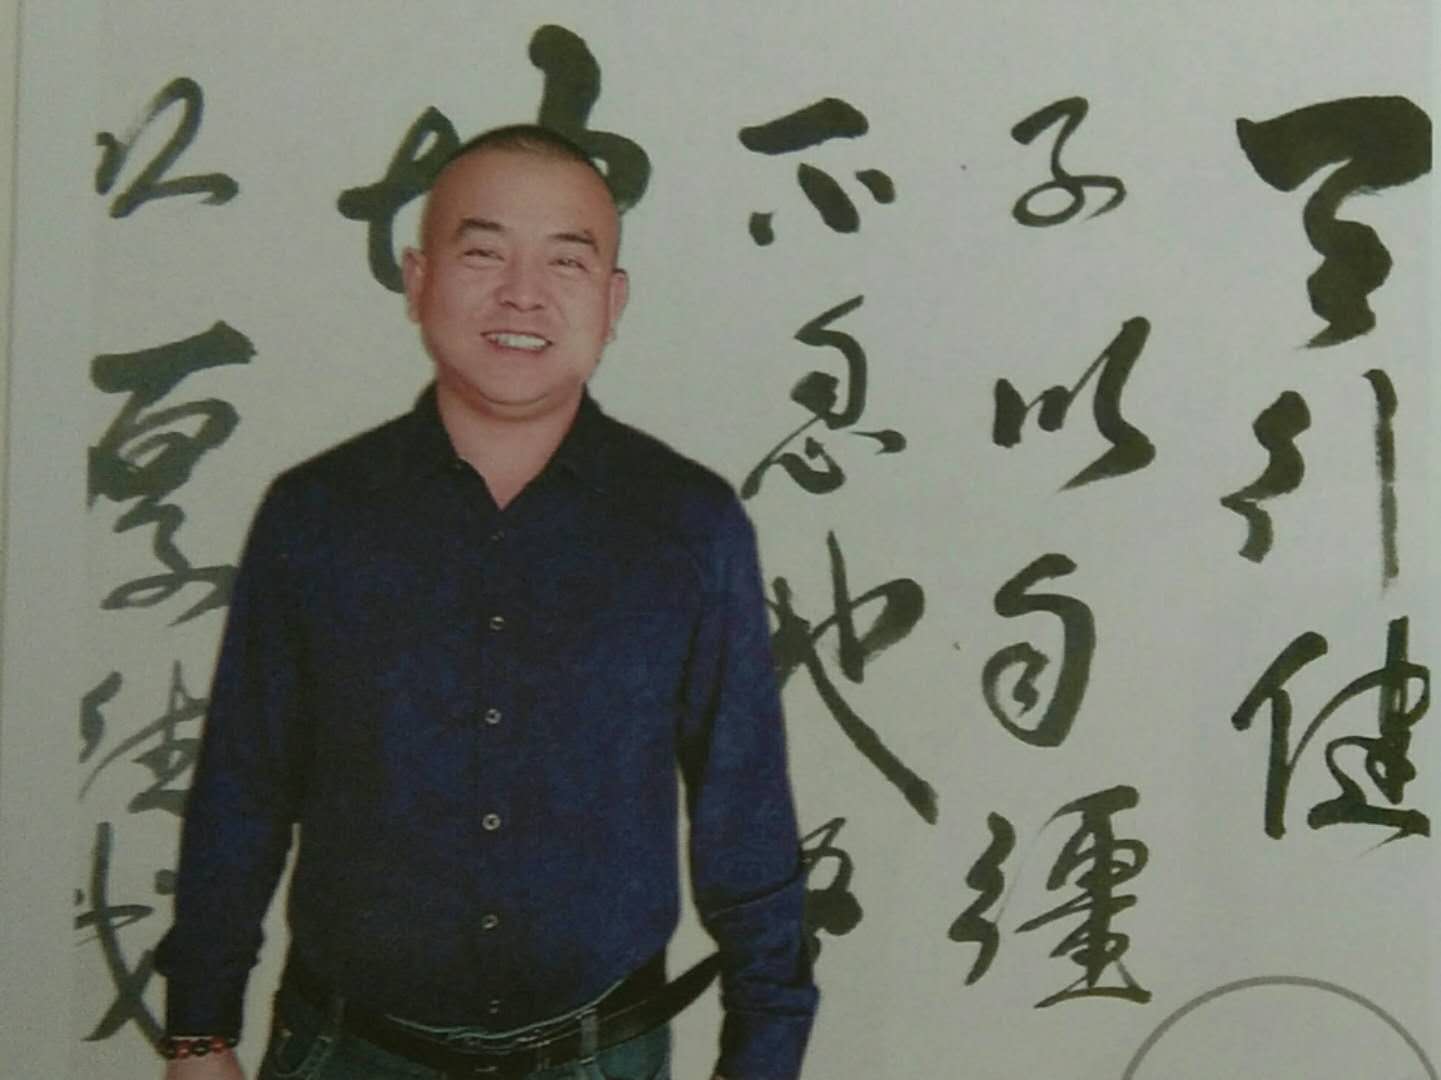 天行健
子以自彊
不息地
坤
以厚德载